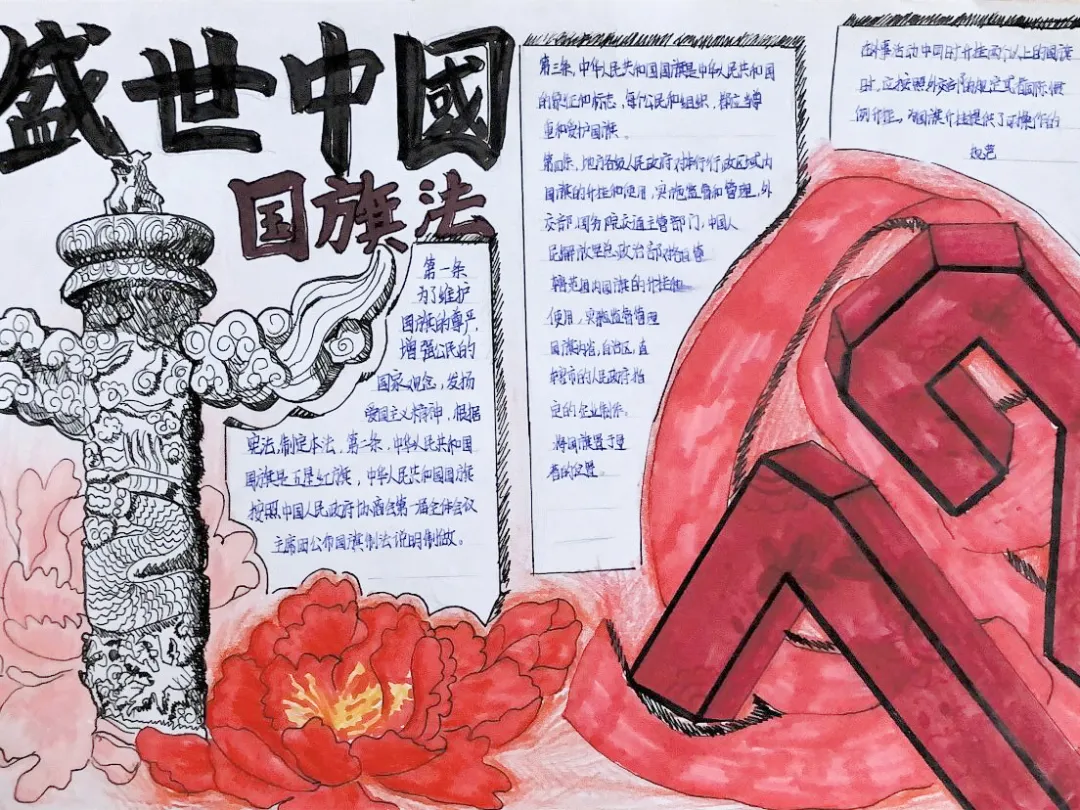 盛世中國
国旗法
第一条
为了维护
国旗的尊严,
增强公民的
国家观念,发扬
爱国主义精神,根据
宪法,制定本法。第二条,中华人民共和国
国旗是五星红旗,中华人民共和国国旗
按照中国人民政府协商会第一届全体会议
主席团公布国旗制法说明制做。
第三条,中华人民共和国国旗是中华人民共和国
的象征和标志,每个公民和组织,都应当尊
重和爱护国旗。
第四条,地方各级人民政府对本行行政区域内
国旗的升挂和使用,实施监督和管理,外
交部,国务院交通主管部门,中国人
民解放军总政治部对
辖范围内国旗的升挂和
使用,实施监督管理
国旗内省,自治区,直
辖市的人民政府指
定的企业制作。
将国旗置于显
著的位置。
在外事活动中同时升挂两个以上的国旗
时,应按照外交部的规定或者国际惯
例升挂。为国旗升挂提供了可操作的
规范